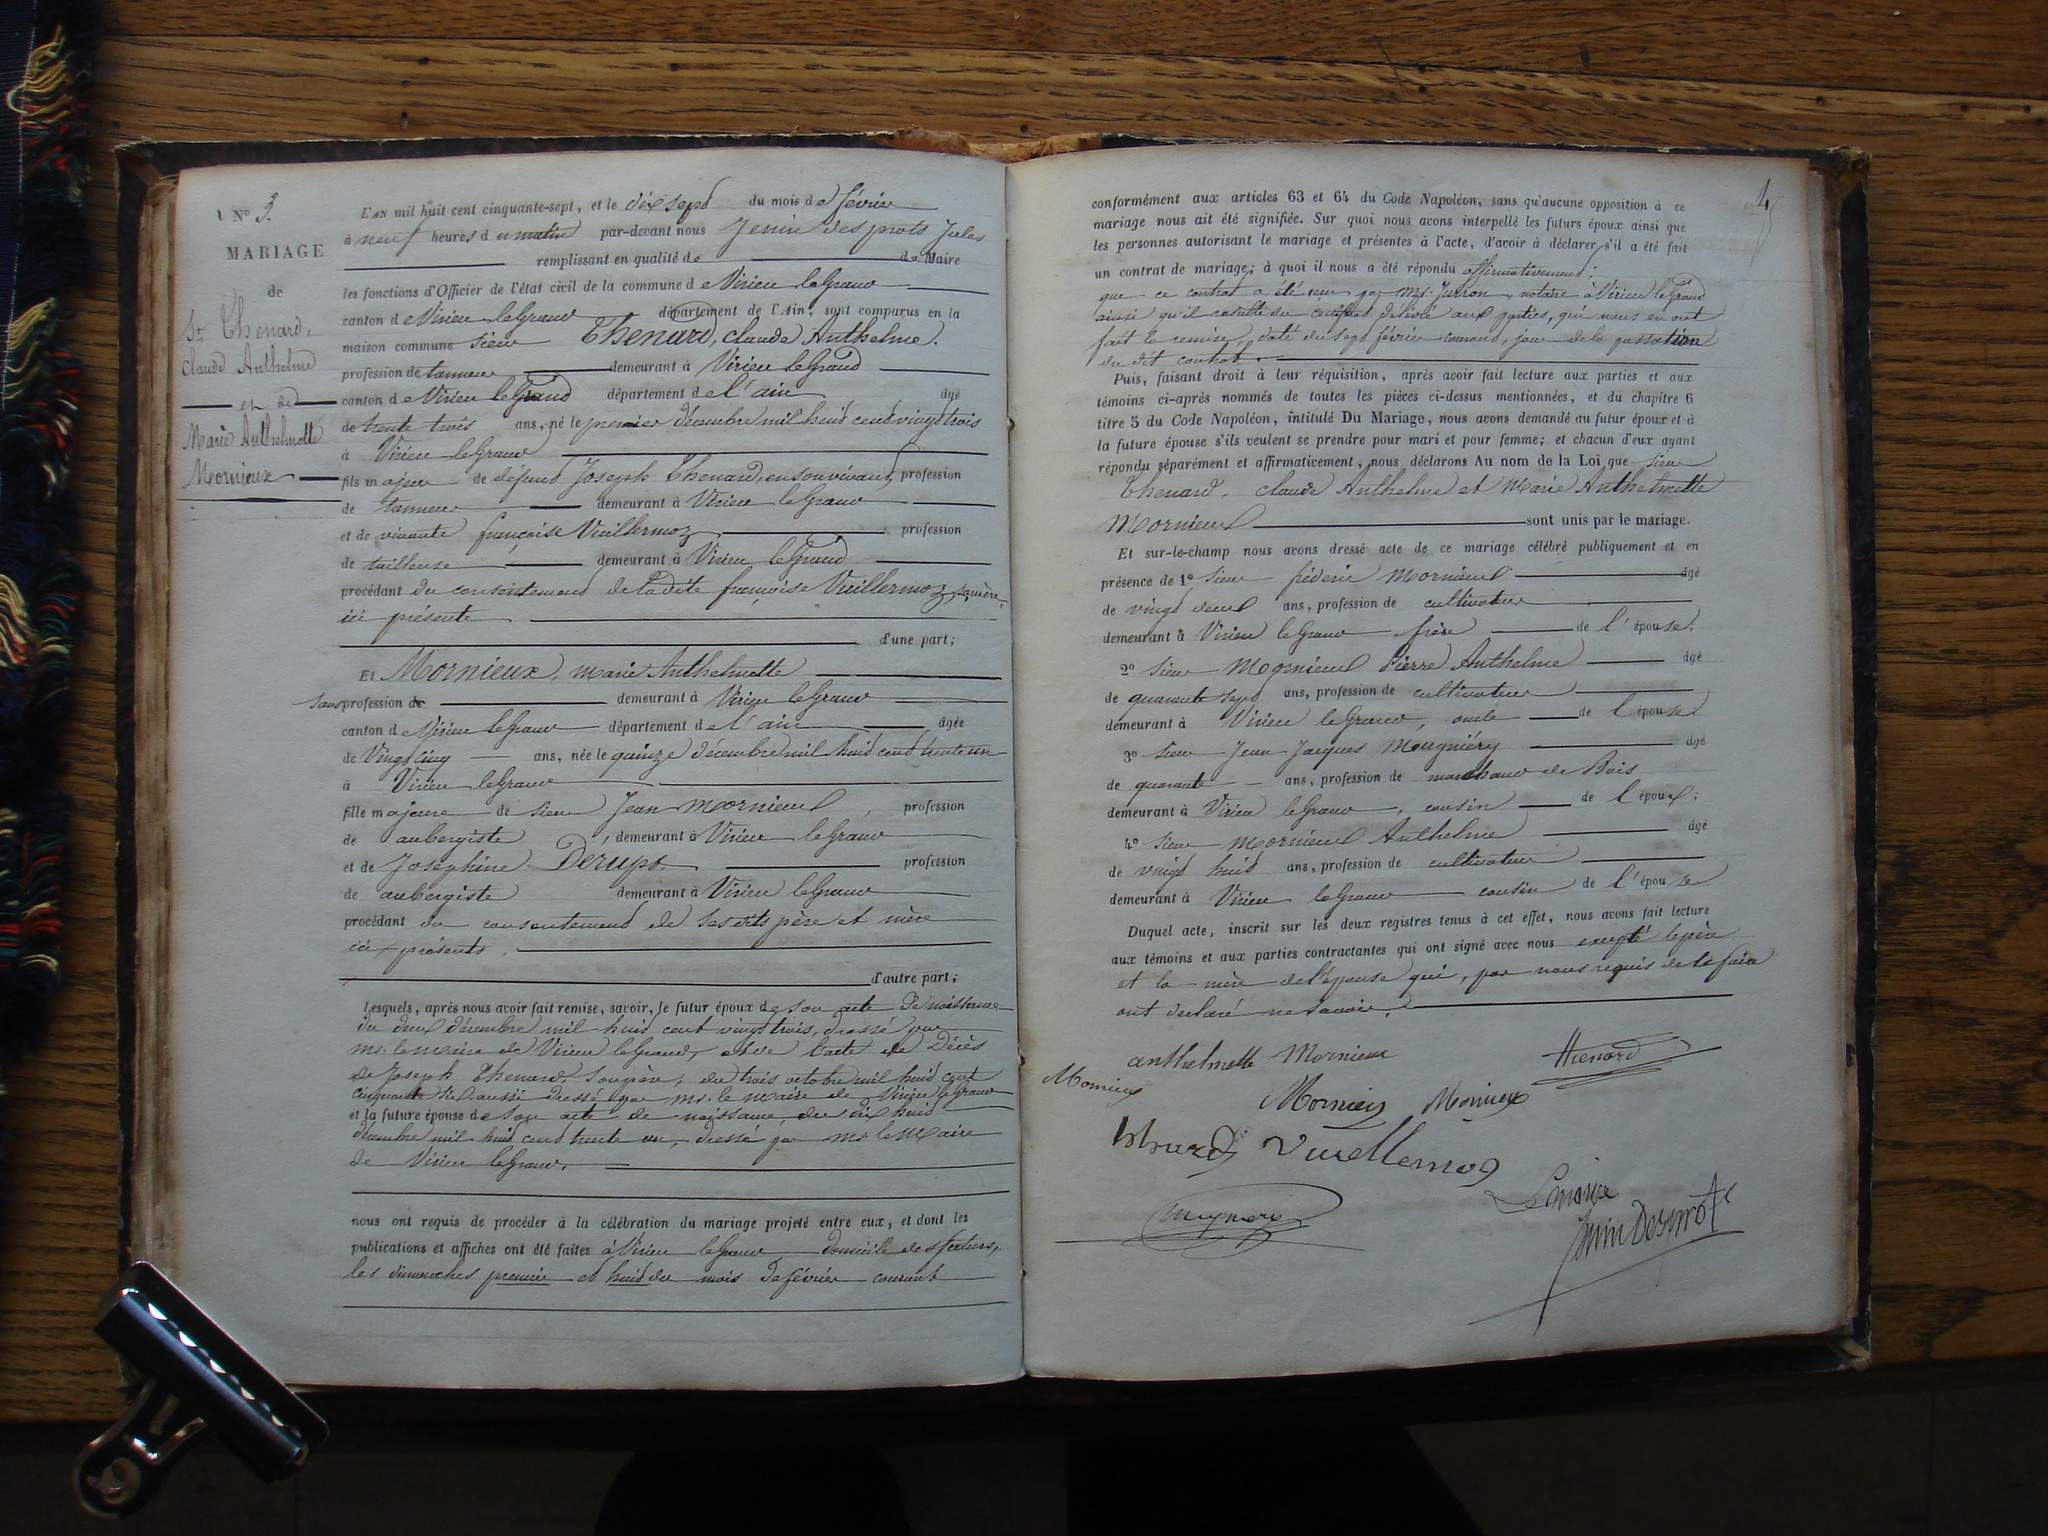 N° 3.
MARIAGE
de
St Thenard,
Claude Anthelme
et de
Marie Anthelmette
Mornieux
L'AN mil huit cent cinquante-sept, et le dix sept du mois de février
à neuf heures du matin par-devant nous Jenin desprots Jules
remplissant en qualité de de Maire
les fonctions d'Officier de l'état civil de la commune de Virieu le Grand
canton de Virieu le Grand département de l'Ain, sont comparus en la
maison commune sieur Thenard, Claude Anthelme.
profession de tanneur demeurant à Virieu le Grand
canton de Virieu le Grand département de l'ain âgé
de trente trois ans, né le premier décembre mil huit cent vingt trois
à Virieu le Grand
fils majeur de défunt Joseph Thenard, en son vivant, profession
de tanneur demeurant à Virieu le Grand
et de vivante françoise Vuillermoz profession
de tailleuse demeurant à Virieu le Grand
procédant du consentement de ladite françoise Vuillermoz, sa mère,
ici présente
d'une part;
Et Mornieux, marie Anthelmette
sans profession de demeurant à Virieu le Grand
canton de Virieu le Grand département de l'ain âgée
de Vingt cinq ans, née le quinze décembre mil huit cent trente un
à Virieu le Grand
fille majeure de sieur Jean Mornieux, profession
de aubergiste, demeurant à Virieu le Grand
et de Joséphine Derupt profession
de aubergiste demeurant à Virieu le Grand
procédant du consentement de ses dits père et mère
ici présents.
d'autre part;
Lesquels, après nous avoir fait remise, savoir, le futur époux de son acte de naissance
du deux décembre mil huit cent vingt trois, dressé par
mr. le maire de Virieu le Grand, et de l'acte de Décès
de Joseph Thenard, son père, du trois octobre mil huit cent
cinquante six aussi dressé par mr. le maire de Virieu le Grand
et la future épouse de son acte de naissance, du dix huit
décembre mil huit cent trente un, dressé par mr. le Maire
de Virieu le Grand,
nous ont requis de procéder à la célébration du mariage projeté entre eux, et dont les
publications et affiches ont été faites à Virieu le Grand domicile des futurs,
les dimanches premier et huit du mois de février courant
4
conformément aux articles 63 et 64 du Code Napoléon, sans qu'aucune opposition à ce
mariage nous ait été signifiée. Sur quoi nous avons interpellé les futurs époux ainsi que
les personnes autorisant le mariage et présentes à l'acte, d'avoir à déclarer s'il a été fait
un contrat de mariage; à quoi il nous a été répondu affirmativement:
que ce contrat a été reçu par Me. Jurron, notaire à Virieu le Grand
ainsi qu'il résulte du certificat délivré aux parties, qui nous en ont
fait la remise, daté du sept février courant, jour de la passation
du dit contrat.
Puis, faisant droit à leur réquisition, après avoir fait lecture aux parties et aux
témoins ci-après nommés de toutes les pièces ci-dessus mentionnées, et du chapitre 6
titre 5 du Code Napoléon, intitulé Du Mariage, nous avons demandé au futur époux et à
la future épouse s'ils veulent se prendre pour mari et pour femme; et chacun d'eux ayant
répondu séparément et affirmativement, nous déclarons Au nom de la Loi que sieur
Thenard, Claude Anthelme et Marie Anthelmette
Mornieux sont unis par le mariage.
Et sur-le-champ nous avons dressé acte de ce mariage célébré publiquement et en
présence de 1° sieur fréderic Mornieux âgé
de vingt deux ans, profession de cultivateur
demeurant à Virieu le Grand frère de l'épouse.
2° sieur Mornieux Pierre Anthelme âgé
de quarante sept ans, profession de cultivateur
demeurant à Virieu le Grand, oncle de l'épouse
3° sieur Jean Jacques Mougniéry âgé
de quarante ans, profession de marchand de Bois
demeurant à Virieu le Grand, cousin de l'époux;
4° sieur Mornieux Anthelme âgé
de vingt huit ans, profession de cultivateur
demeurant à Virieu le Grand cousin de l'épouse
Duquel acte, inscrit sur les deux registres tenus à cet effet, nous avons fait lecture
aux témoins et aux parties contractantes qui ont signé avec nous excepté le père
et la mère de l'épouse qui, par nous requis de le faire
ont declaré ne savoir.
anthelmette Mornieux Thenard
Mornieux
Mornieux Mornieux
Vuillermoz
Le maire
Jenin Desprots